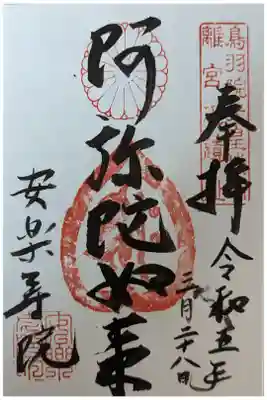 奉拝
令和五年
三月二十八日
阿弥陀如来
安楽寿院